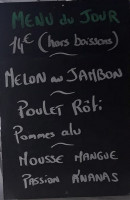 MENU du JOUR
14€ (hors boissons)
MELON au JAMBON
POULET RÔTI
POMMES alu
MOUSSE MANGUE
PASSION ANANAS